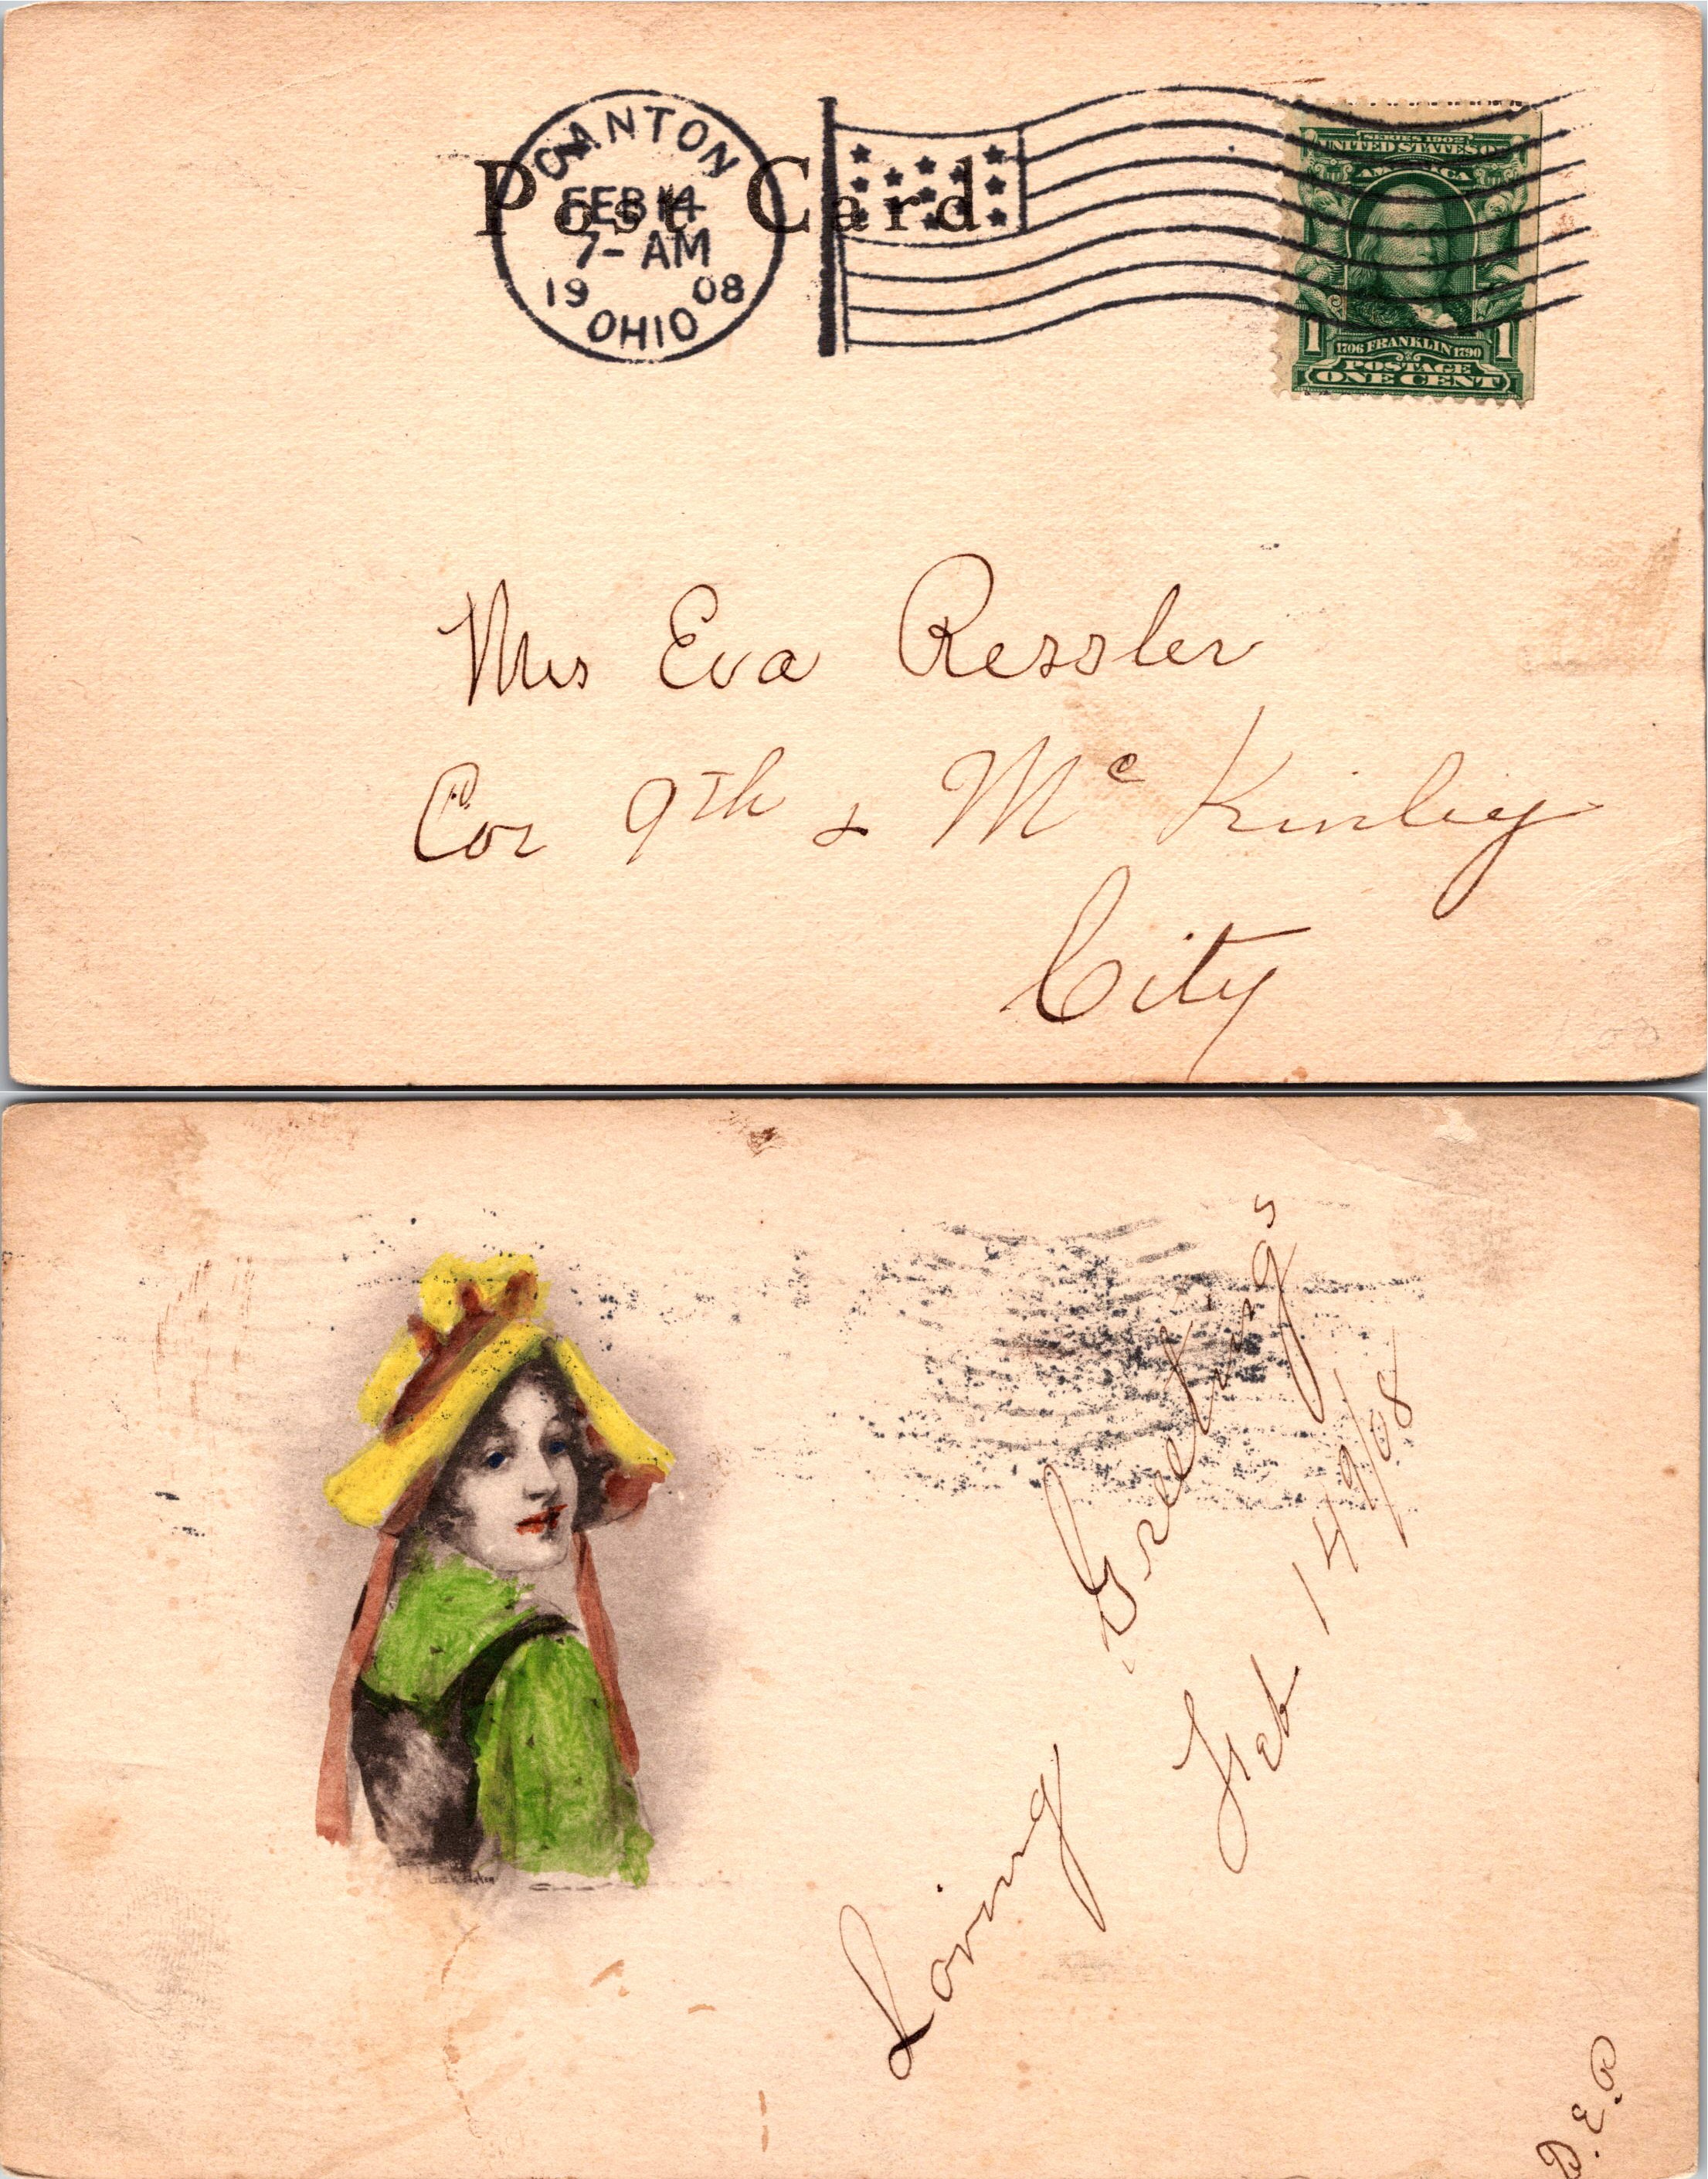 CANTON
FEB 14
7- AM
19 08
OHIO
Post Card
SERIES 1902
UNITED STATES OF
AMERICA
1 1706 FRANKLIN 1790 1
POSTAGE
ONE CENT
Mrs Eva Ressler
Cor 9th & McKinley
City
Loving Greetings
Feb 14 9/08
D.E.P.